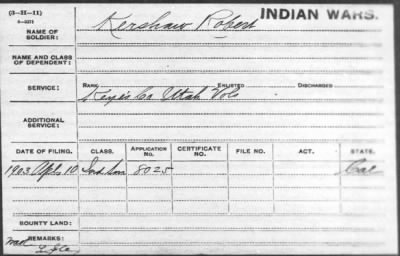 (3-H-11)
INDIAN WARS.
NAME OF SOLDIER: Kershaw Robert
NAME AND CLASS OF DEPENDENT:
SERVICE: RANK ENLISTED DISCHARGED
Co Utah Vols
ADDITIONAL SERVICE:
DATE OF FILING. CLASS. APPLICATION NO. CERTIFICATE NO. FILE NO. ACT. STATE.
1903 Apl 10 8025 Cal
BOUNTY LAND:
REMARKS: